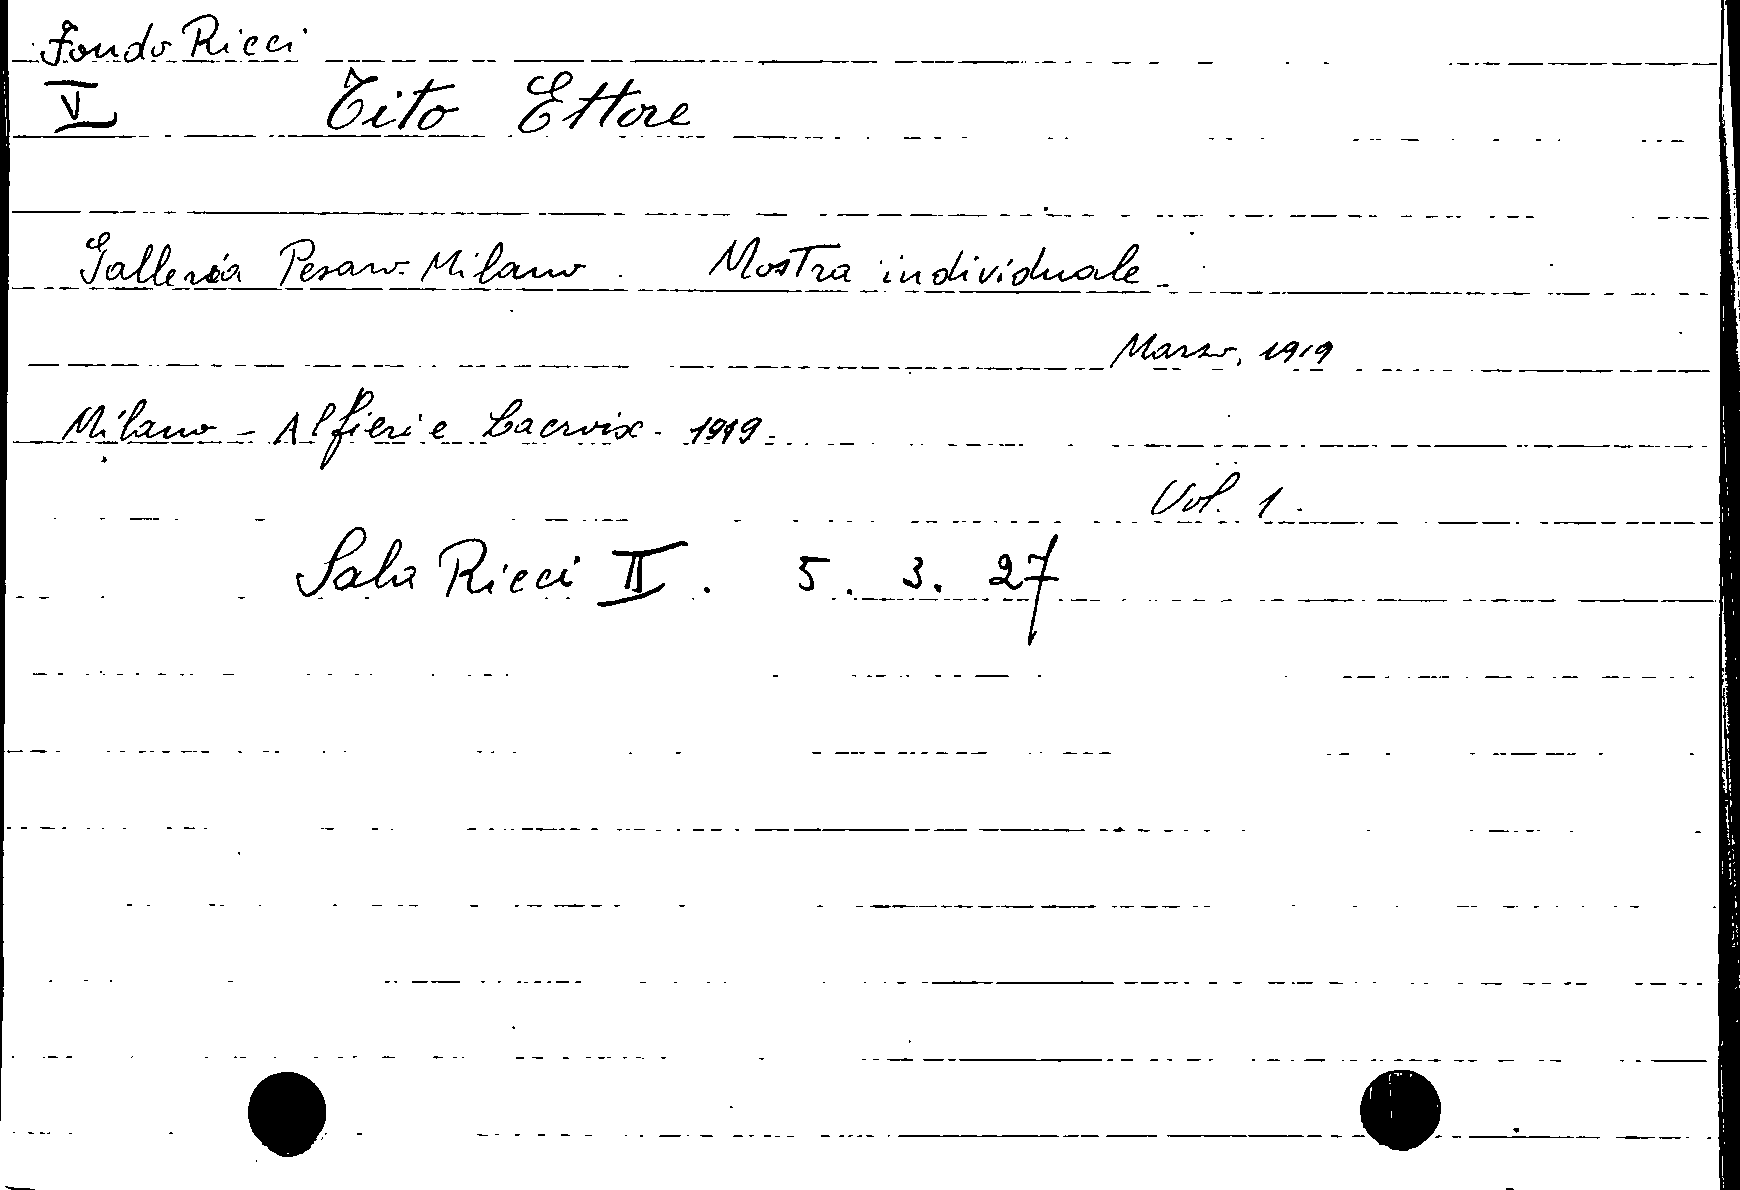 Fondo Ricci
V Tito Ettore
Galleria Pesaro - Milano. Mostra individuale.
Marzo, 1919
Milano - Alfieri e Lacroix - 1919.
Vol. 1.
Sala Ricci II. 5. 3. 27